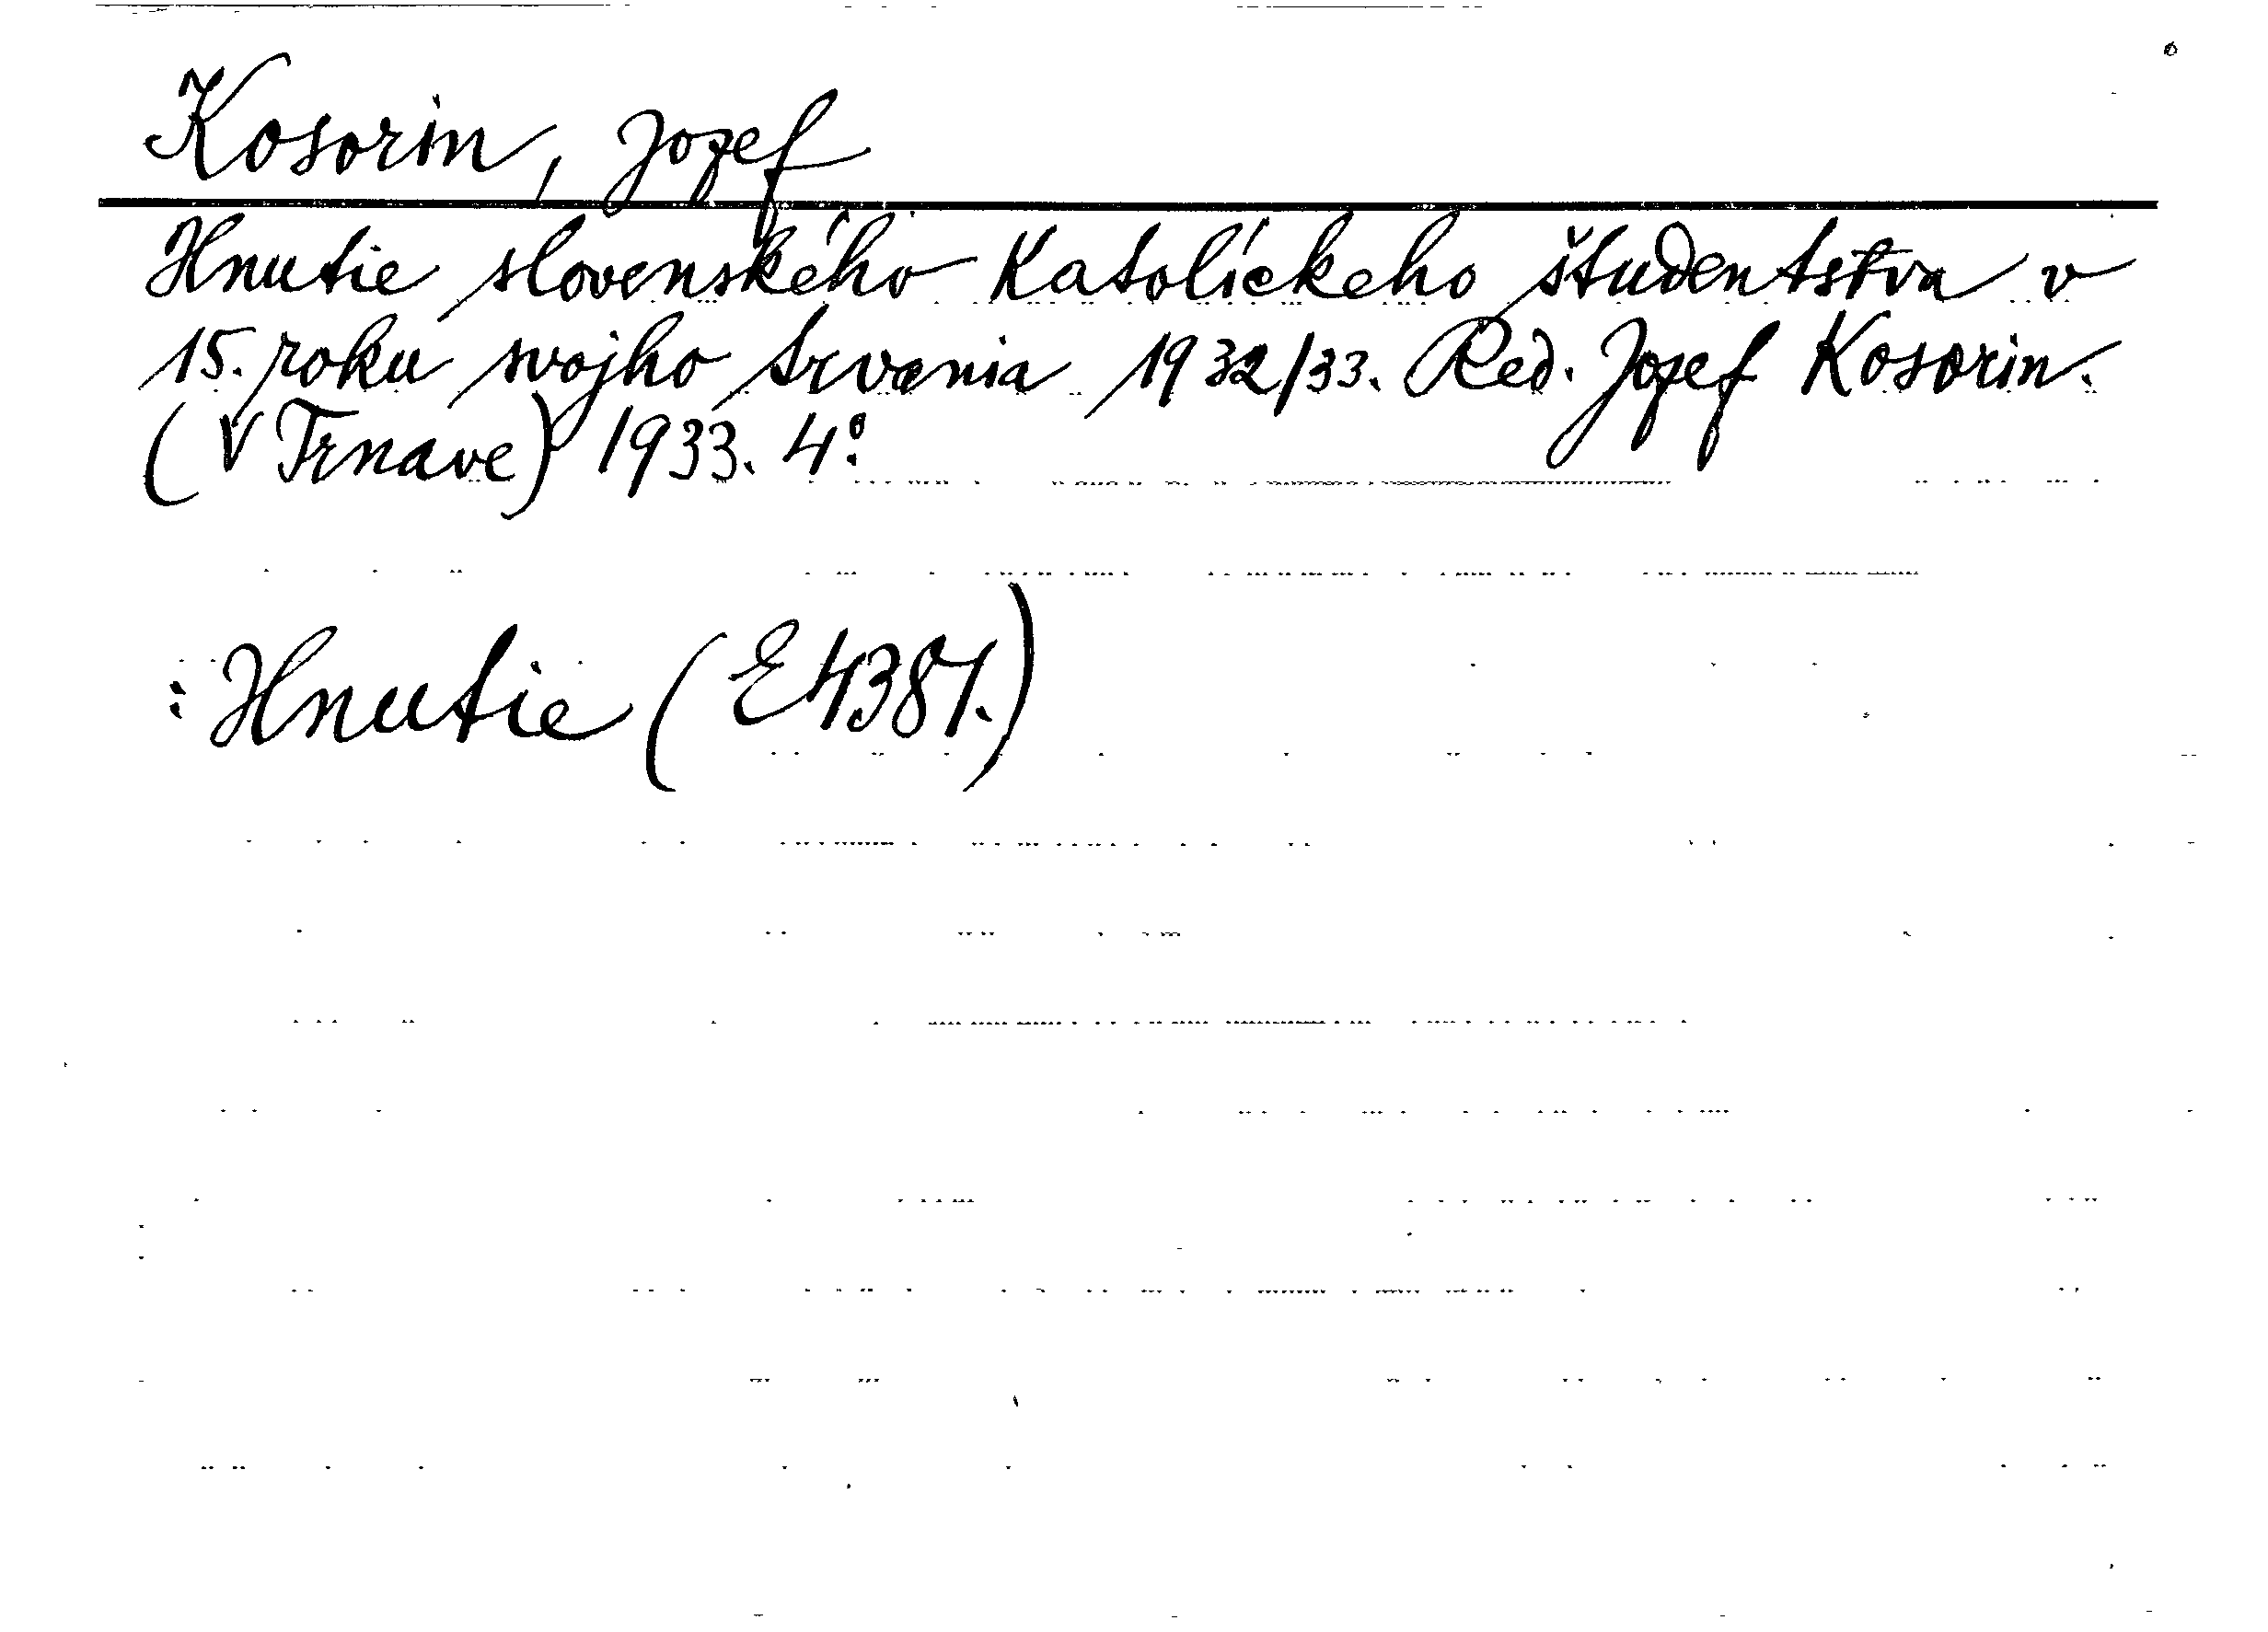 Kosorin, Jozef
Hnutie slovenského Katolíckeho študentstva v
15. roku svojho trvania 1932/33. Red. Jozef Kosorin.
(V Trnave) 1933. 4°.
: Hnutie (E4387.)